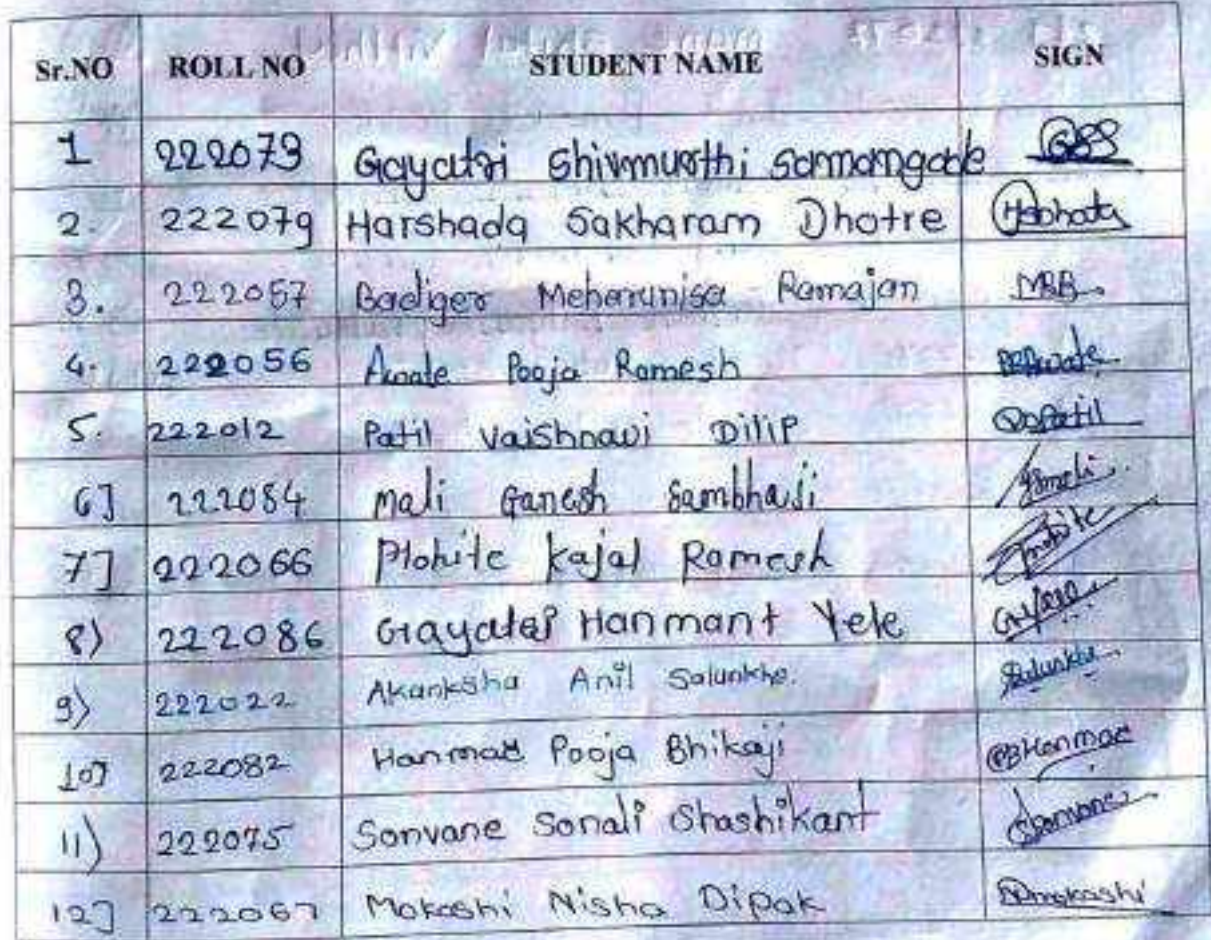 Sr.NO ROLL NO STUDENT NAME SIGN
1 222073 Gayatri Shivmurthi Samangade GSS
2. 222079 Harshada Sakharam Dhotre
3. 222057 Badiger Meharunisa Ramajan MBB
4. 222056 Awale Pooja Ramesh
5. 222012 Patil Vaishnavi Dilip
6] 222084 mali Ganesh Sambhaji
7] 222066 Mohite Kajal Ramesh
8) 222086 Gayatri Hanmant Yele
9) 222022 Akanksha Anil Salunkhe. Salunkhe
10] 222082 Hanmae Pooja Bhikaji PBHanmae
11) 222075 Sonvane Sonali Shashikant
12] 222067 Mokashi Nisha Dipak NDmokashi